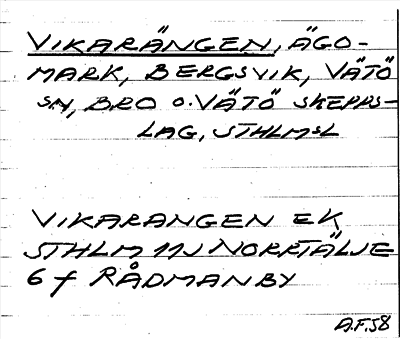 VIKARÄNGEN, ÄGO-
MARK, BERGSVIK, VÄTÖ
SN, BRO o. VÄTÖ SKEPPS-
LAG, STHLMSL
VIKARANGEN EK
STHLM 11J NORRTÄLJE
6 f RÅDMANBY
A.F. 58